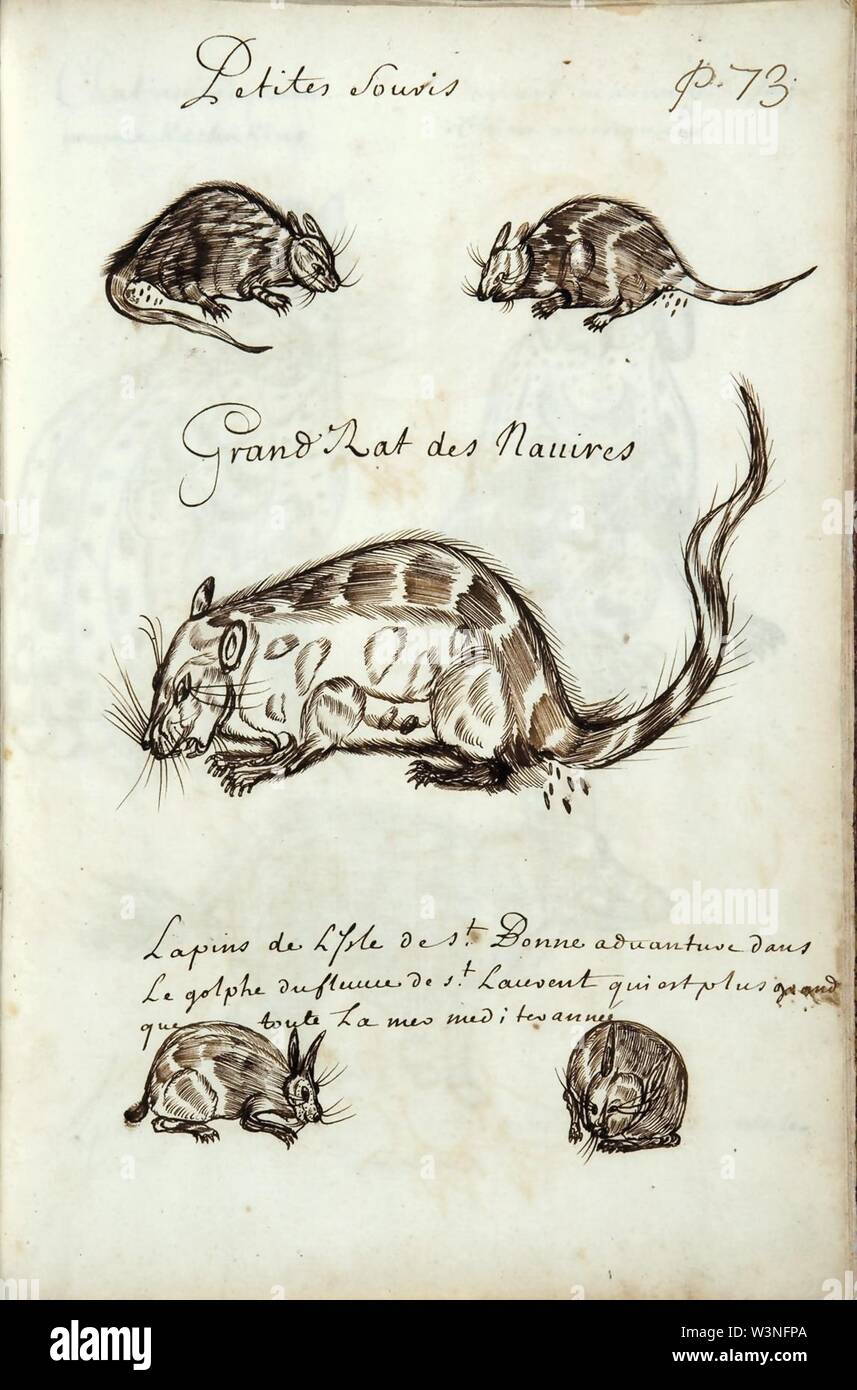 Petites Souris
P. 73.
Grand Rat des Nauires
Lapins de L'Isle de st. Bonne aduanture dans
Le golphe du fleuue de st. Laurent qui est plus grand
que toute La mer mediterannee
a alamy stock photo
alamy
Image ID: W3NFPA
www.alamy.com